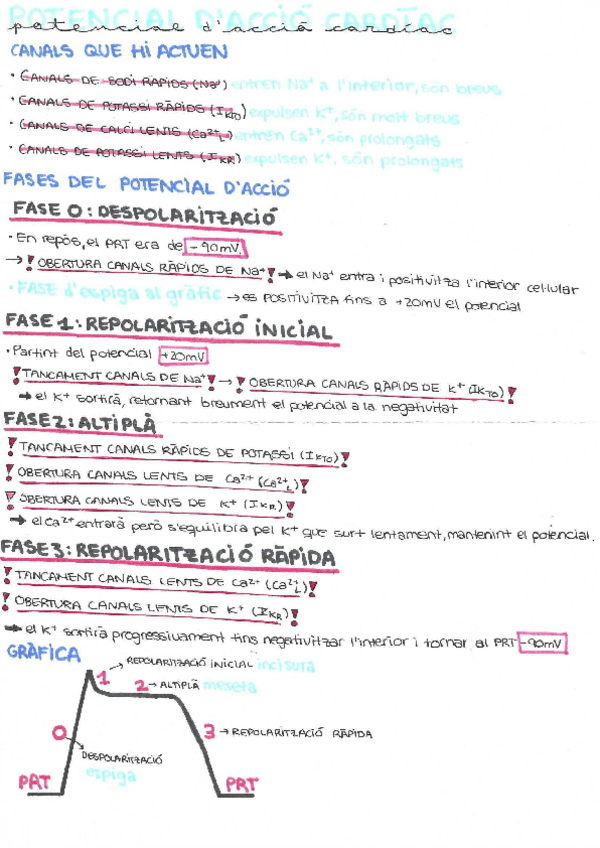 POTENCIAL D'ACCIÓ CARDÍAC
potencial d'acció cardíac
CANALS QUE HI ACTUEN
· CANALS DE SODI RÀPIDS (Na⁺) entren Na⁺ a l'interior, són breus
· CANALS DE POTASSI RÀPIDS (IKTO) expulsen K⁺, són molt breus
· CANALS DE CALCI LENTS (Ca²⁺L) entren Ca²⁺, són prolongats
· CANALS DE POTASSI LENTS (IKR) expulsen K⁺, són prolongats
FASES DEL POTENCIAL D'ACCIÓ
FASE 0: DESPOLARITZACIÓ
· En repòs, el PRT era de -90mV.
→ ! OBERTURA CANALS RÀPIDS DE Na⁺ ! → el Na⁺ entra i positivitza l'interior cel·lular
· FASE d'espiga al gràfic → es POSITIVITZA fins a +20mV el potencial
FASE 1: REPOLARITZACIÓ INICIAL
· Partint del potencial +20mV
! TANCAMENT CANALS DE Na⁺ ! → ! OBERTURA CANALS RÀPIDS DE K⁺ (IKTO) !
→ el K⁺ sortirà, retornant breument el potencial a la negativitat
FASE 2: ALTIPLÀ
! TANCAMENT CANALS RÀPIDS DE POTASSI (IKTO) !
! OBERTURA CANALS LENTS DE Ca²⁺ (Ca²⁺L) !
! OBERTURA CANALS LENTS DE K⁺ (IKR) !
→ el Ca²⁺ entrarà però s'equilibra pel K⁺ que surt lentament, mantenint el potencial.
FASE 3: REPOLARITZACIÓ RÀPIDA
! TANCAMENT CANALS LENTS DE Ca²⁺ (Ca²⁺L) !
! OBERTURA CANALS LENTS DE K⁺ (IKR) !
→ el K⁺ sortirà progressivament fins negativitzar l'interior i tornar al PRT -90mV
GRÀFICA
1 → REPOLARITZACIÓ INICIAL incisura
2 → ALTIPLÀ meseta
0
3 → REPOLARITZACIÓ RÀPIDA
DESPOLARITZACIÓ
espiga
PRT
PRT